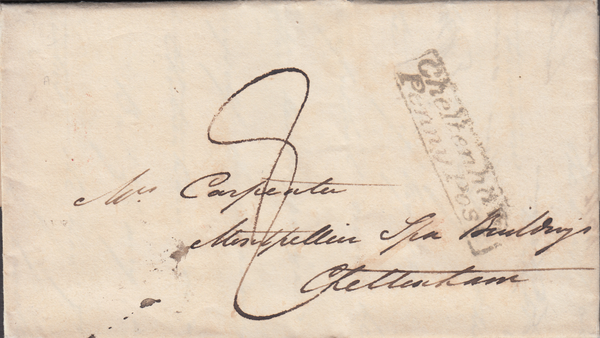 Cheltenham
Penny Post
8
Mrs Carpenter
Montpellier Spa Buildings
Cheltenham